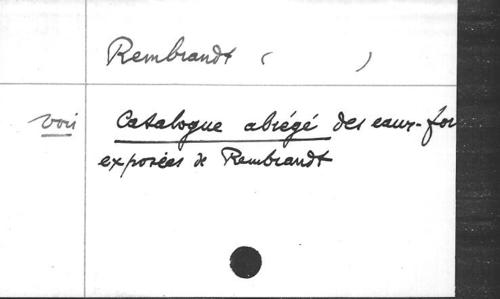 Rembrandt ( )
voir Catalogue abrégé des eaux-for
exposées de Rembrandt